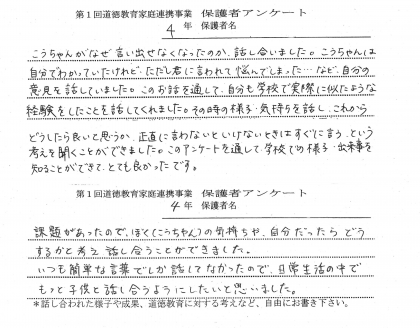 第１回道徳教育家庭連携事業 保護者アンケート
4 年 保護者名
こうちゃんがなぜ言い出せなくなったのか、話し合いました。こうちゃんは
自分でわかっていたけれど、ただし君に言われて悩んでしまった…など、自分の
意見を話していました。このお話を通して、自分も学校で実際に似たような
経験をしたことを話してくれました。その時の様子・気持ちを話し、これから
どうしたら良いと思うか、正直に言わないといけないときはすぐに言う、という
考えを聞くことができました。このアンケートを通して、学校での様子・出来事を
知ることができて、とても良かったです。
第１回道徳教育家庭連携事業 保護者アンケート
4 年 保護者名
課題があったので、ぼく(こうちゃん)の気持ちや、自分だったらどう
するかと考え話し合うことができました。
いつも簡単な言葉でしか話してなかったので、日常生活の中で
もっと子供と話し合うようにしたいと思いました。
＊話し合われた様子や成果、道徳教育に対する考えなど、自由にお書き下さい。